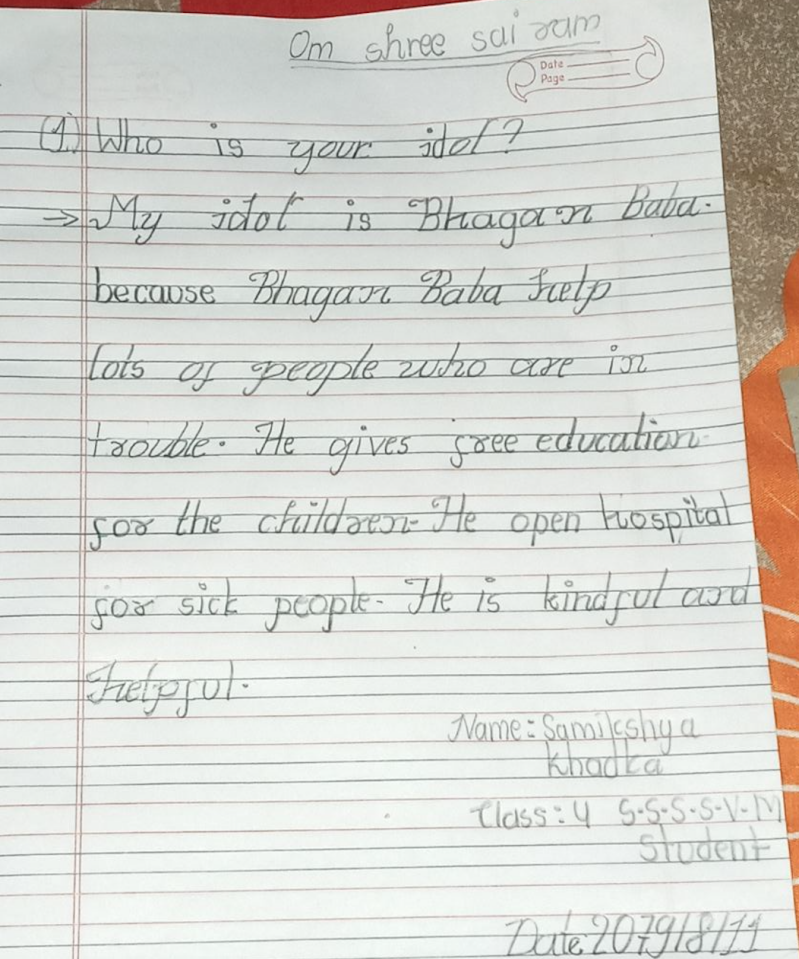 Om shree sai ram
Date
Page
(1.) Who is your idol?
→ My idol is Bhagan Baba.
because Bhagan Baba help
lots of people who are in
trouble. He gives free education
for the children. He open hospital
for sick people. He is kindful and
helpful.
Name: Samikshya
Khadka
Class: 4 S.S.S.S.V.M
Student
Date: 2079/8/11